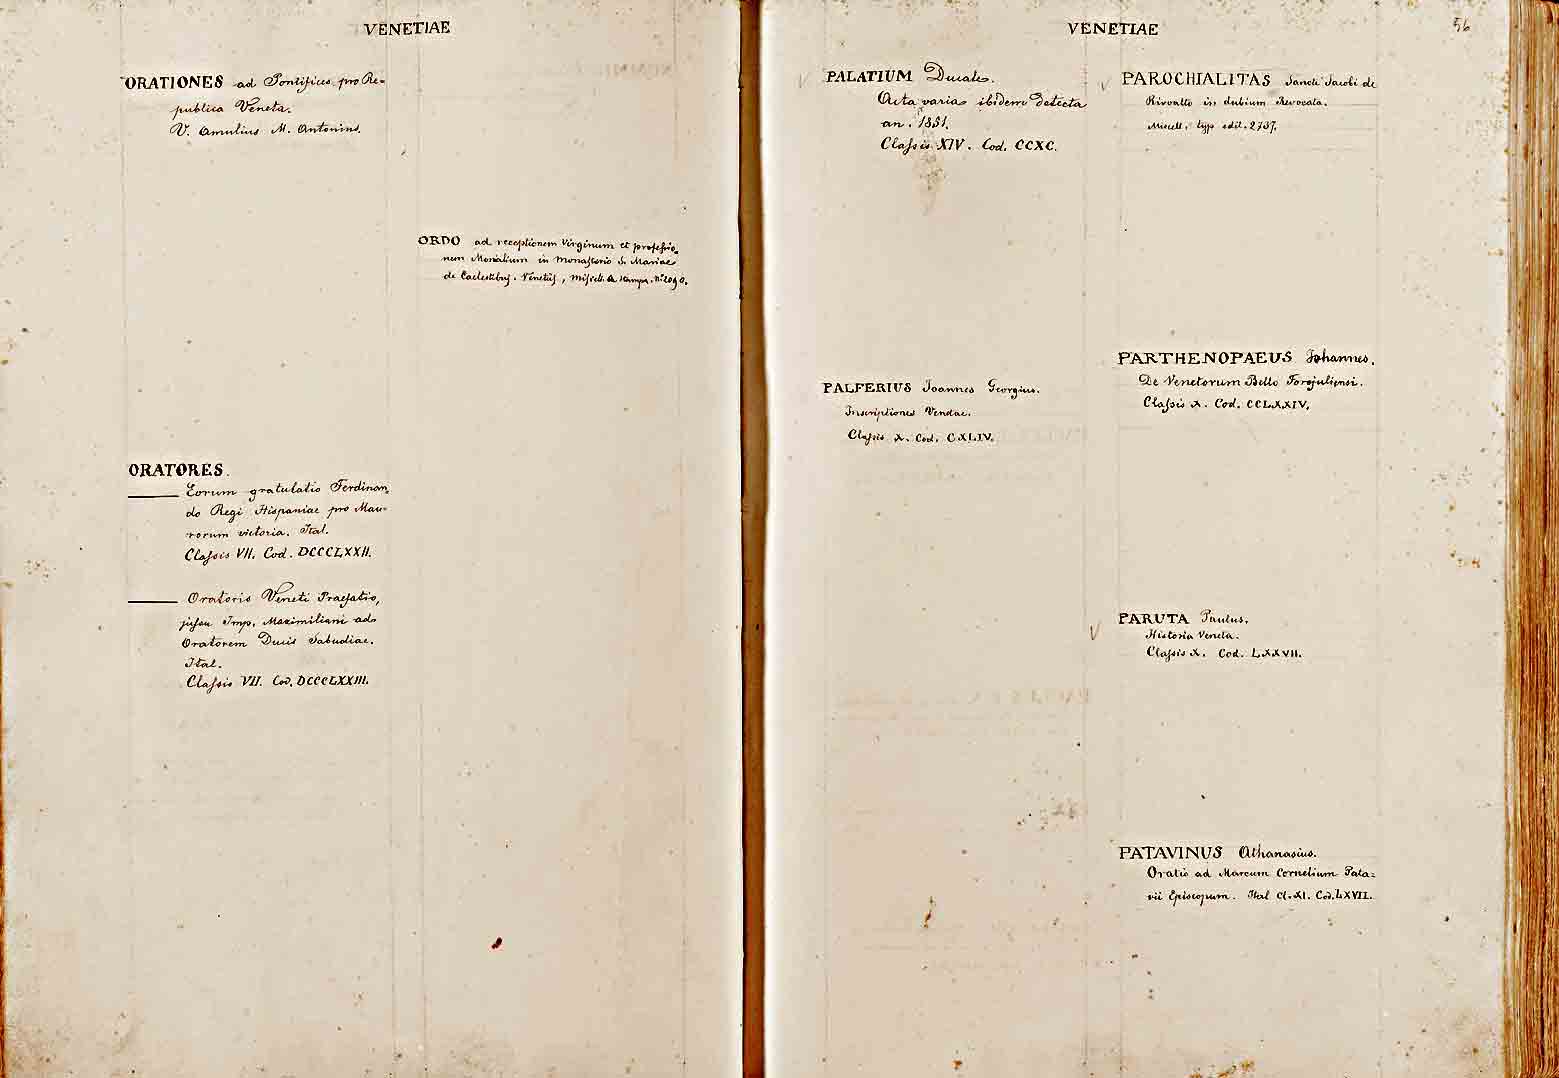 VENETIAE
ORATIONES ad Pontifices pro Re=
publica Veneta.
V. Amulius M. Antonius.
ORDO ad receptionem Virginum et professio=
nem Monialium in Monasterio S. Mariae
de Caelestibus. Venetiis, Miscell. a stampa. N.° 2090.
ORATORES.
Eorum gratulatio Ferdinan=
do Regi Hispaniae pro Mau=
rorum victoria. Ital.
Classis VII. Cod. DCCCLXXII.
Oratoris Veneti Praefatio,
jussu Imp. Maximiliani ad
Oratorem Ducis Sabudiae.
Ital.
Classis VII. Cod. DCCCLXXIII.
VENETIAE
56
PALATIUM Ducale.
Acta varia ibidem detecta
an. 1851.
Classis XIV. Cod. CCXC.
PALFERIUS Joannes Georgius.
Inscriptiones Venetae.
Classis X. Cod. CXLIV.
PAROCHIALITAS Sancti Jacobi de
Rivoalto in dubium revocata.
Miscell. typ. edit. 2737.
PARTHENOPAEUS Johannes.
De Venetorum Bello Forojuliensi.
Classis X. Cod. CCLXXIV.
PARUTA Paulus.
Historia Veneta.
Classis X. Cod. LXXVII.
PATAVINUS Athanasius.
Oratio ad Marcum Cornelium Pata=
vii Episcopum. Ital Cl. XI. Cod. LXVII.